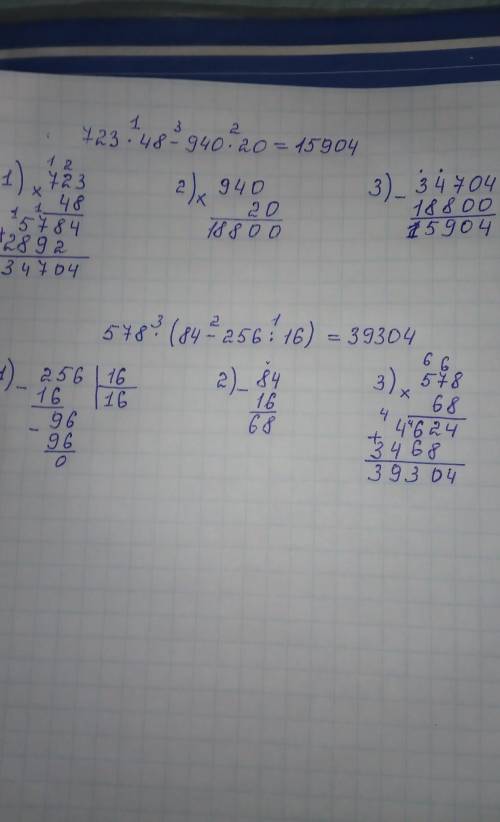 723 · 48 - 940 · 20 = 15904
1) × 723
48
5784
+ 2892
34704
2) × 940
20
18800
3) - 34704
18800
15904
578 · (84 - 256 : 16) = 39304
1) - 256 | 16
16 | 16
- 96
96
0
2) - 84
16
68
3) × 578
68
4624
+ 3468
39304